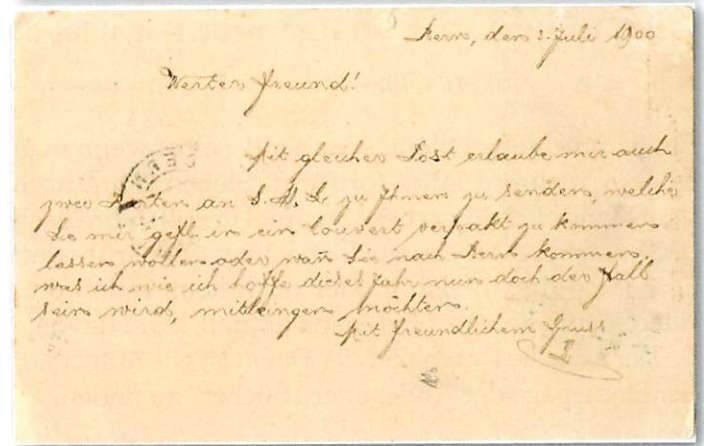 Bern, den 3. Juli 1900
Werter Freund!
Mit gleicher Post erlaube mir auch
zwei Karten an S. M. L. zu Ihnen zu senden, welche
Sie mir gefl. in ein Couvert verpakt zu kommen
lassen wollen oder wan̄ Sie nach Bern kommen,
was ich wie ich hoffe dieses Jahr nun doch der Fall
sein wird, mitbringen möchten.
Mit freundlichem Gruss